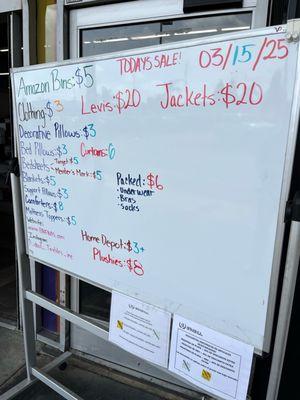 TODAYS SALE!
03/15/25
Amazon Bins: $5
Clothing: $3
Levis: $20
Jackets: $20
Decorative Pillows: $3
Bed Pillows: $3
Curtains: 6
Bedsheets
Target $5
Member's Mark: $5
Blankets: $5
Packed: $6
- Underwear
- Bras
- Socks
Support Pillows: $3
Comforters: $8
Mattress Toppers: $5
Website:
Instagram:
Home Depot: $3+
Plushies: $8